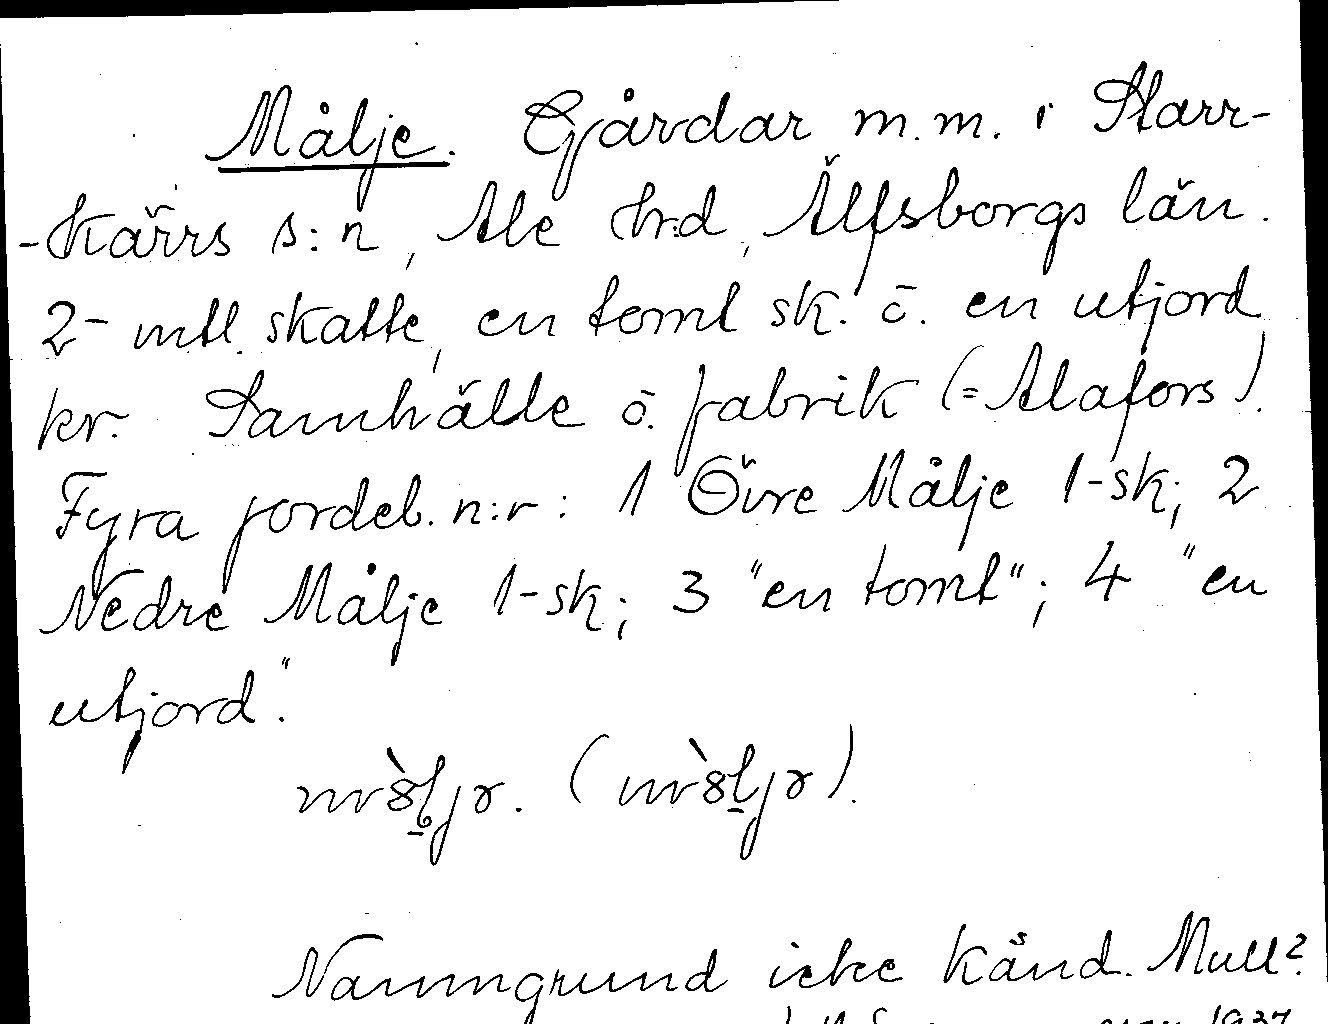 Målje. Gårdar m.m. i Starr-
-kärrs s:n, Ale hrd, Älfsborgs län.
2- mtl. skatte, en tomt sk. o. en utjord
kr. Samhälle o. fabrik (= Alafors).
Fyra jordeb. n:r: 1 Övre Målje 1-sk; 2
Nedre Målje 1-sk; 3 "en tomt"; 4 "en
utjord."
Namngrund icke känd. Mull?
1937